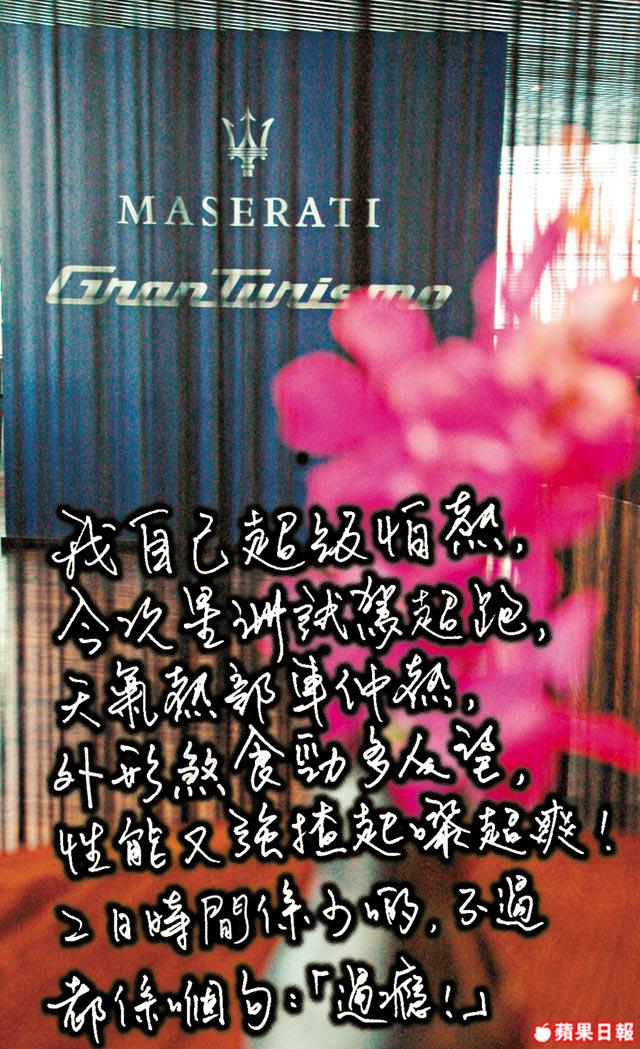 MASERATI
GranTurismo
我自己超級怕熱，
今次星洲試駕超跑，
天氣熱部車仲熱，
外形煞食勁多人望，
性能又強揸起嚟超爽！
2日時間係少啲，不過
都係嗰句：「過癮！」
蘋果日報